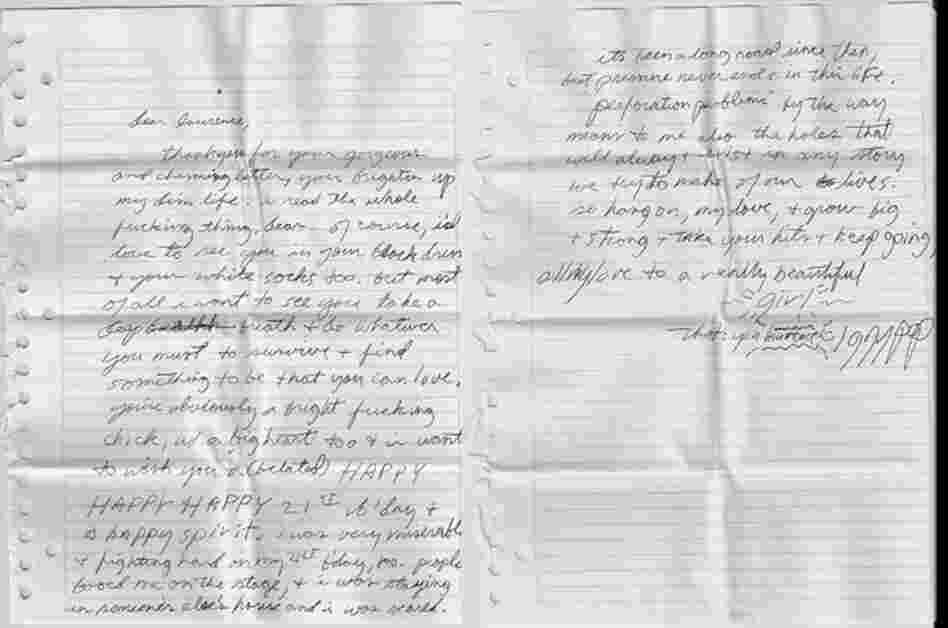 dear Laurence,
thankyou for your gorgeous
and charming letter, you brighten up
my dim life. i read the whole
fucking thing, dear. of course, id
love to see you in your black dress
& your white socks too. but most
of all i want to see you take a
deep breath & do whatever
you must to survive & find
something to be that you can love.
you're obviously a bright fucking
chick, w/ a big heart too & i want
to wish you a (belated) HAPPY
HAPPY HAPPY 21ST b'day &
a happy spirit. i was very miserable
& fighting hard on my 21ST b'day, too. people
booed me on the stage, & i was staying
in someone else's house and i was scared.
its been a long road since then,
but pressure never ends in this life.
'perforation problems' by the way
means to me also the holes that
will always exist in any story
we try to make of our lives.
so hang on, my love, & grow big
& strong & take your hits & keep going.
all my love to a really beautiful
girl
that's you Laurence.